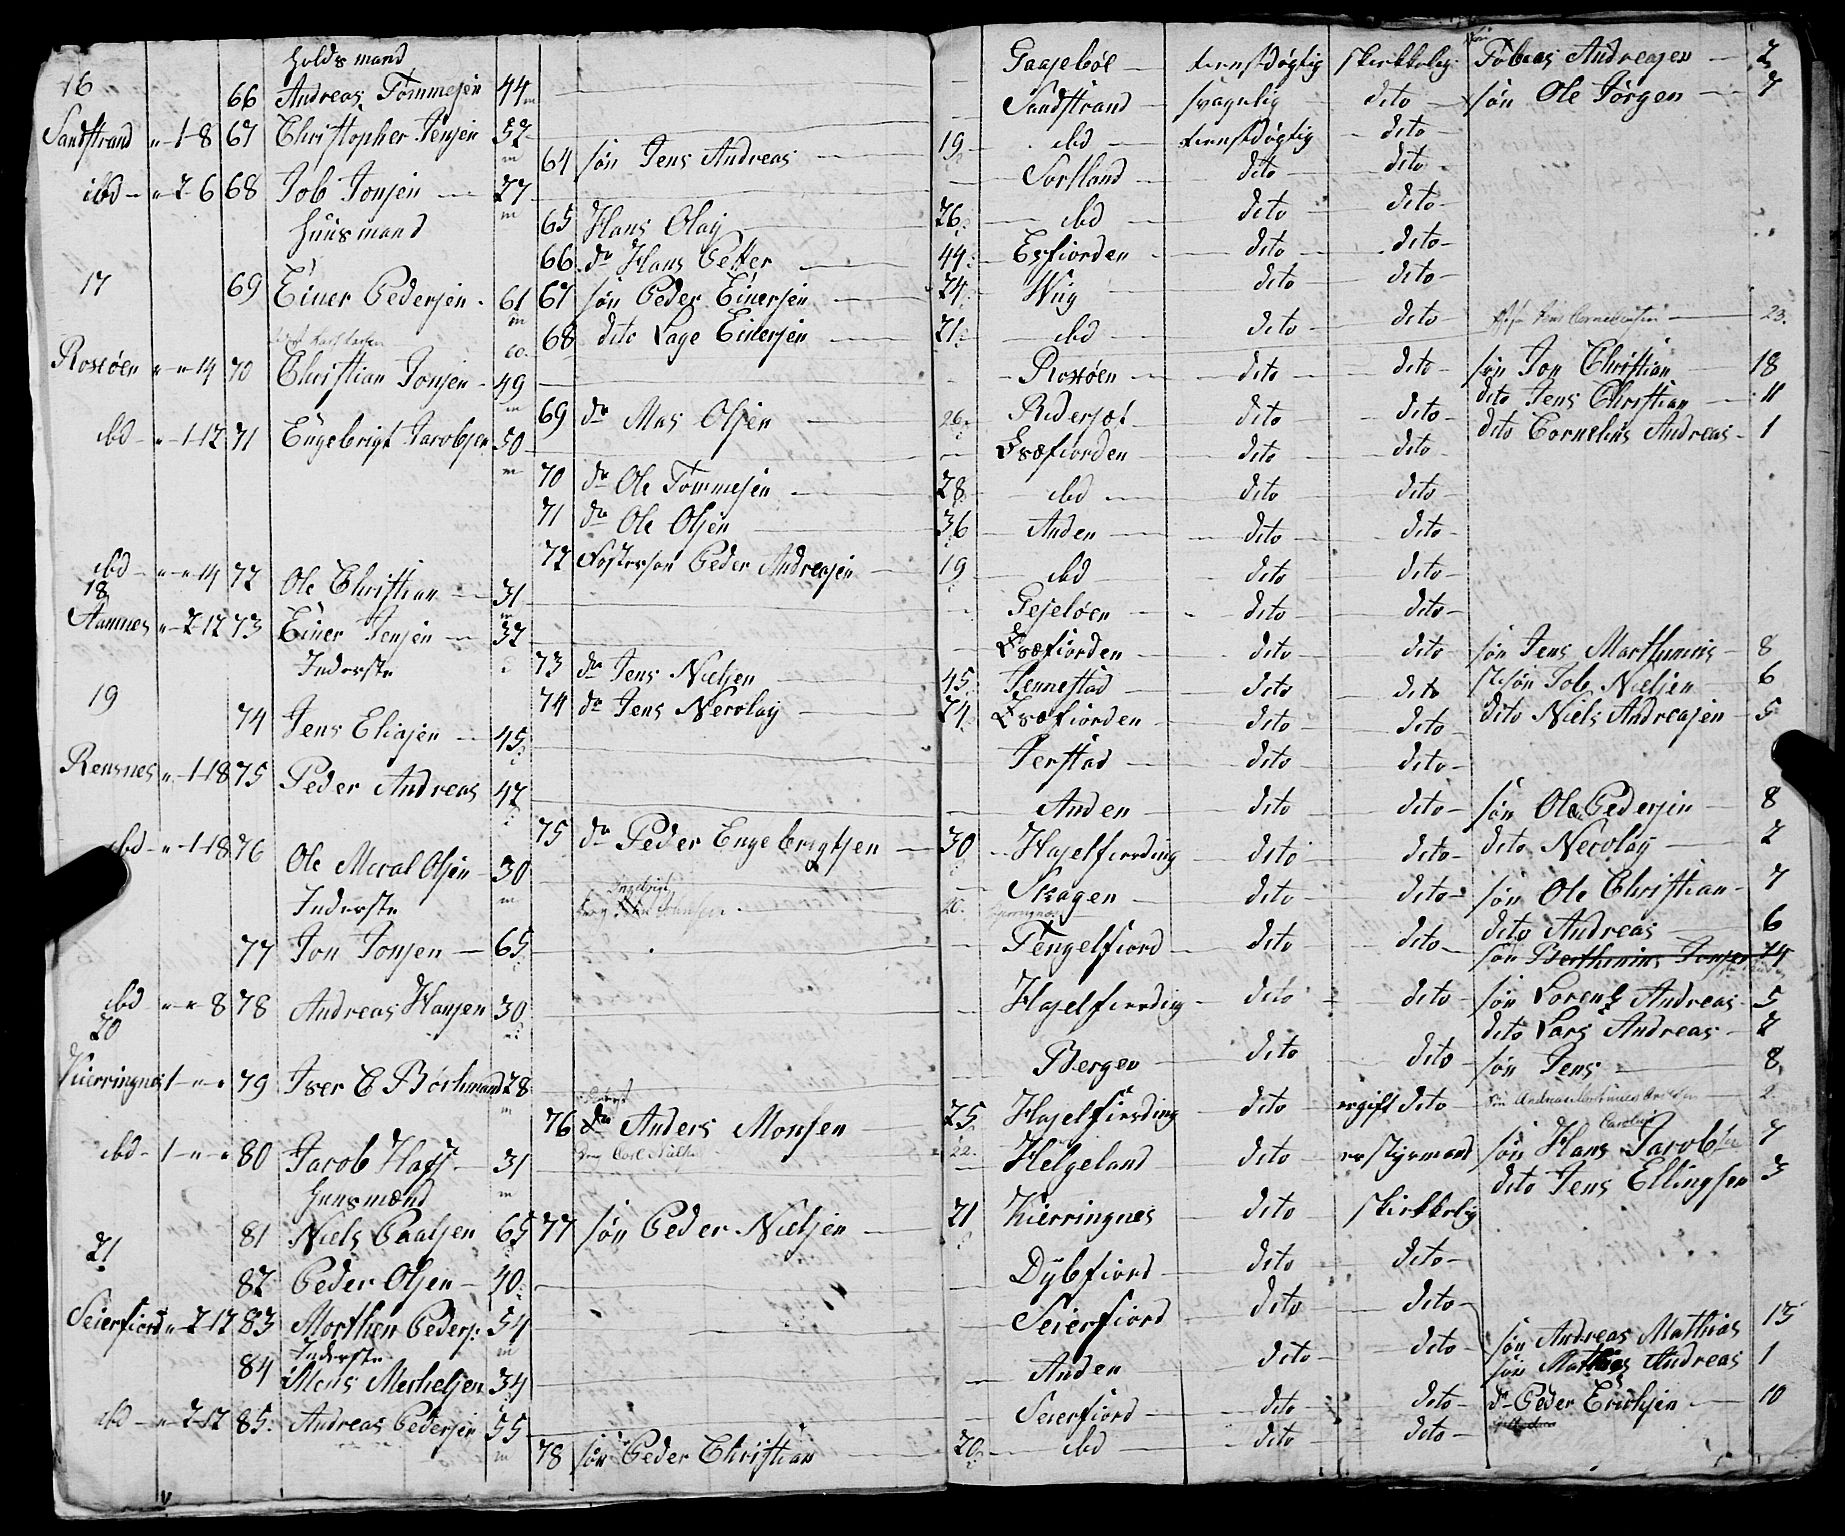 Holdsmand Gaasebøe tienstdøgtig skikkelig Søn Tobias Andreasen 2
16 66 Andreas Tommesen 44 Sandstrand svagelig dito søn Ole Jørgen 7
Sandstrand " 1-8 67 Christopher Jensen 52 ibd tienstdøgtig dito
64 søn Jens Andreas 19 Sortland dito dito
ibd " 2 6 68 Job Jonsen 27
Huusmand 65 Hans Olaij 26 ibd dito dito
66 dr Hans Petter 44 Exfiorden dito dito
17 69 Einer Pedersen 61 67 søn Peder Einersen 24 Wiig dito dito
68 dito Lage Einersen 21 ibd dito dito 23
Roksøen " " 14 70 Christian Jonsen 49 Roksøen dito dito søn Jon Christian 18
dito Jens Christian 11
69 dr Mas Olsen 26 Ridersæt dito dito dito Cornelius Andreas 1
ibd " 1-12 71 Engebrigt Jacobsen 50 Exefiorden dito dito
70 dr Ole Tommesen 28 ibd dito dito
71 dr Ole Olsen 36 Anden dito dito
72 Fostersøn Peder Andreasen 19 ibd dito dito
ibd " " 14 72 Ole Christian 31 Geseløen dito dito
18
Aamnes " 2-12 73 Einer Jensen 32 Exefiorden dito dito søn Jens Marthinus 8
Inderste 73 dr Jens Nielsen 45 Jennestad dito dito stisøn Job Nielsen 6
19 74 dr Jens Nicolaij 24 Exefiorden dito dito dito Niels Andreasen 5
74 Jens Eliasen 45 Jerstad dito dito
Rensnes " 1-18 75 Peder Andreas 42 Anden dito dito søn Ole Pedersen 8
75 dr Peder Engebrigtsen 30 Haselfiording dito dito dito Nicolaij 2
ibd " 1-18 76 Ole Meral Olsen 30 Skagen dito dito søn Ole Christian 7
Inderste dito Andreas 6
77 Jon Jonsen 65 Tengelfiord dito dito søn Berthinius Jonsen 24
ibd " " 8 78 Andreas Hansen 30 Haselfiording dito dito søn Lorentz Andreas 5
20 dito Lars Andreas 2
Kierringnes 1 " " 79 Iver C Bochmand 28 Bergen dito dito søn Jens 8
76 dr Anders Monsen 25 Haselfiording dito ergift dito 2
ibd 1 " " 80 Jacob Hass 31 22 Helgeland dito er styrmand søn Hans Jacob 7
Huusmænd dito Jens Ellingsen 3
81 Niels Paalsen 65 77 søn Peder Nielsen 21 Kierringnes dito skikkelig
21
82 Peder Olsen 40 Dybfiord dito dito
Seierfiord " 2-12 83 Morthen Peders: 54 Seierfiord dito dito søn Andreas Mathias 13
Inderste
84 Mons Mechelsen 34 Anden dito dito søn Mathias Andreas 1
ibd " 2-12 85 Andreas Pedersen 55 Seierfiord dito dito dr Peder Erichsen 10
78 søn Peder Christian 20 ibd dito dito